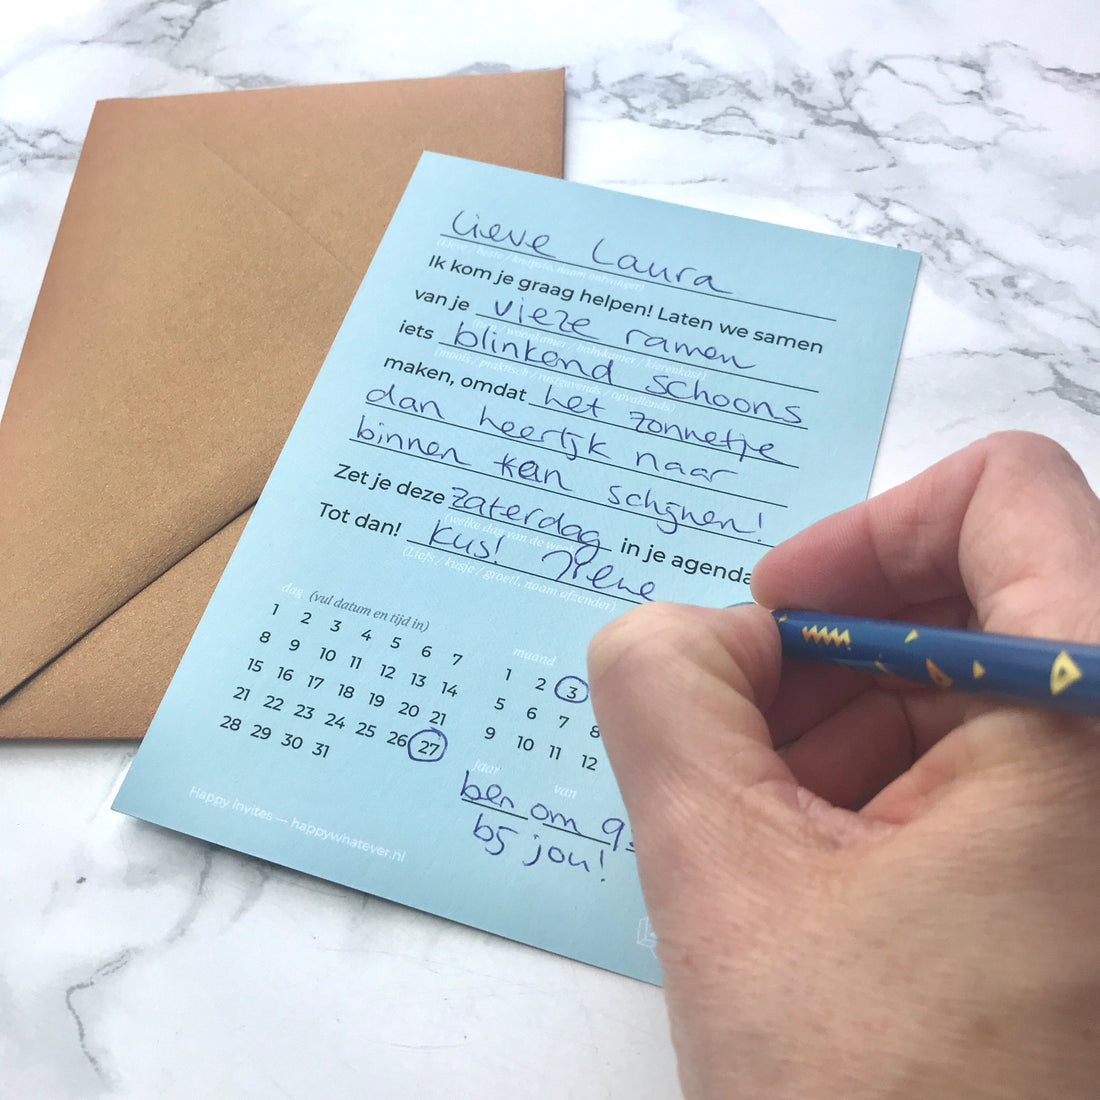 Lieve Laura
(Lieve / beste / knapste, naam ontvanger)
Ik kom je graag helpen! Laten we samen
van je vieze ramen
iets blinkend schoons
(moois / praktisch / rustgevends / opvallends)
maken, omdat het zonnetje
dan heerlijk naar
binnen kan schijnen!
Zet je deze zaterdag in je agenda
(welke dag van de week)
Tot dan! kus! Irene
(Liefs / kusje / groet!, naam afzender)
dag (vul datum en tijd in)
1 2 3 4 5 6 7
8 9 10 11 12 13 14
15 16 17 18 19 20 21
21 22 23 24 25 26 27
28 29 30 31
maand
1 2 3
5 6 7 8
9 10 11 12
jaar van
ben om 9:
bij jou!
Happy Invites — happywhatever.nl